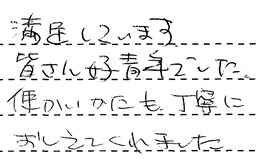 満足しています
皆さん好青年でした。
使かいかたも、丁寧に
おしえてくれました